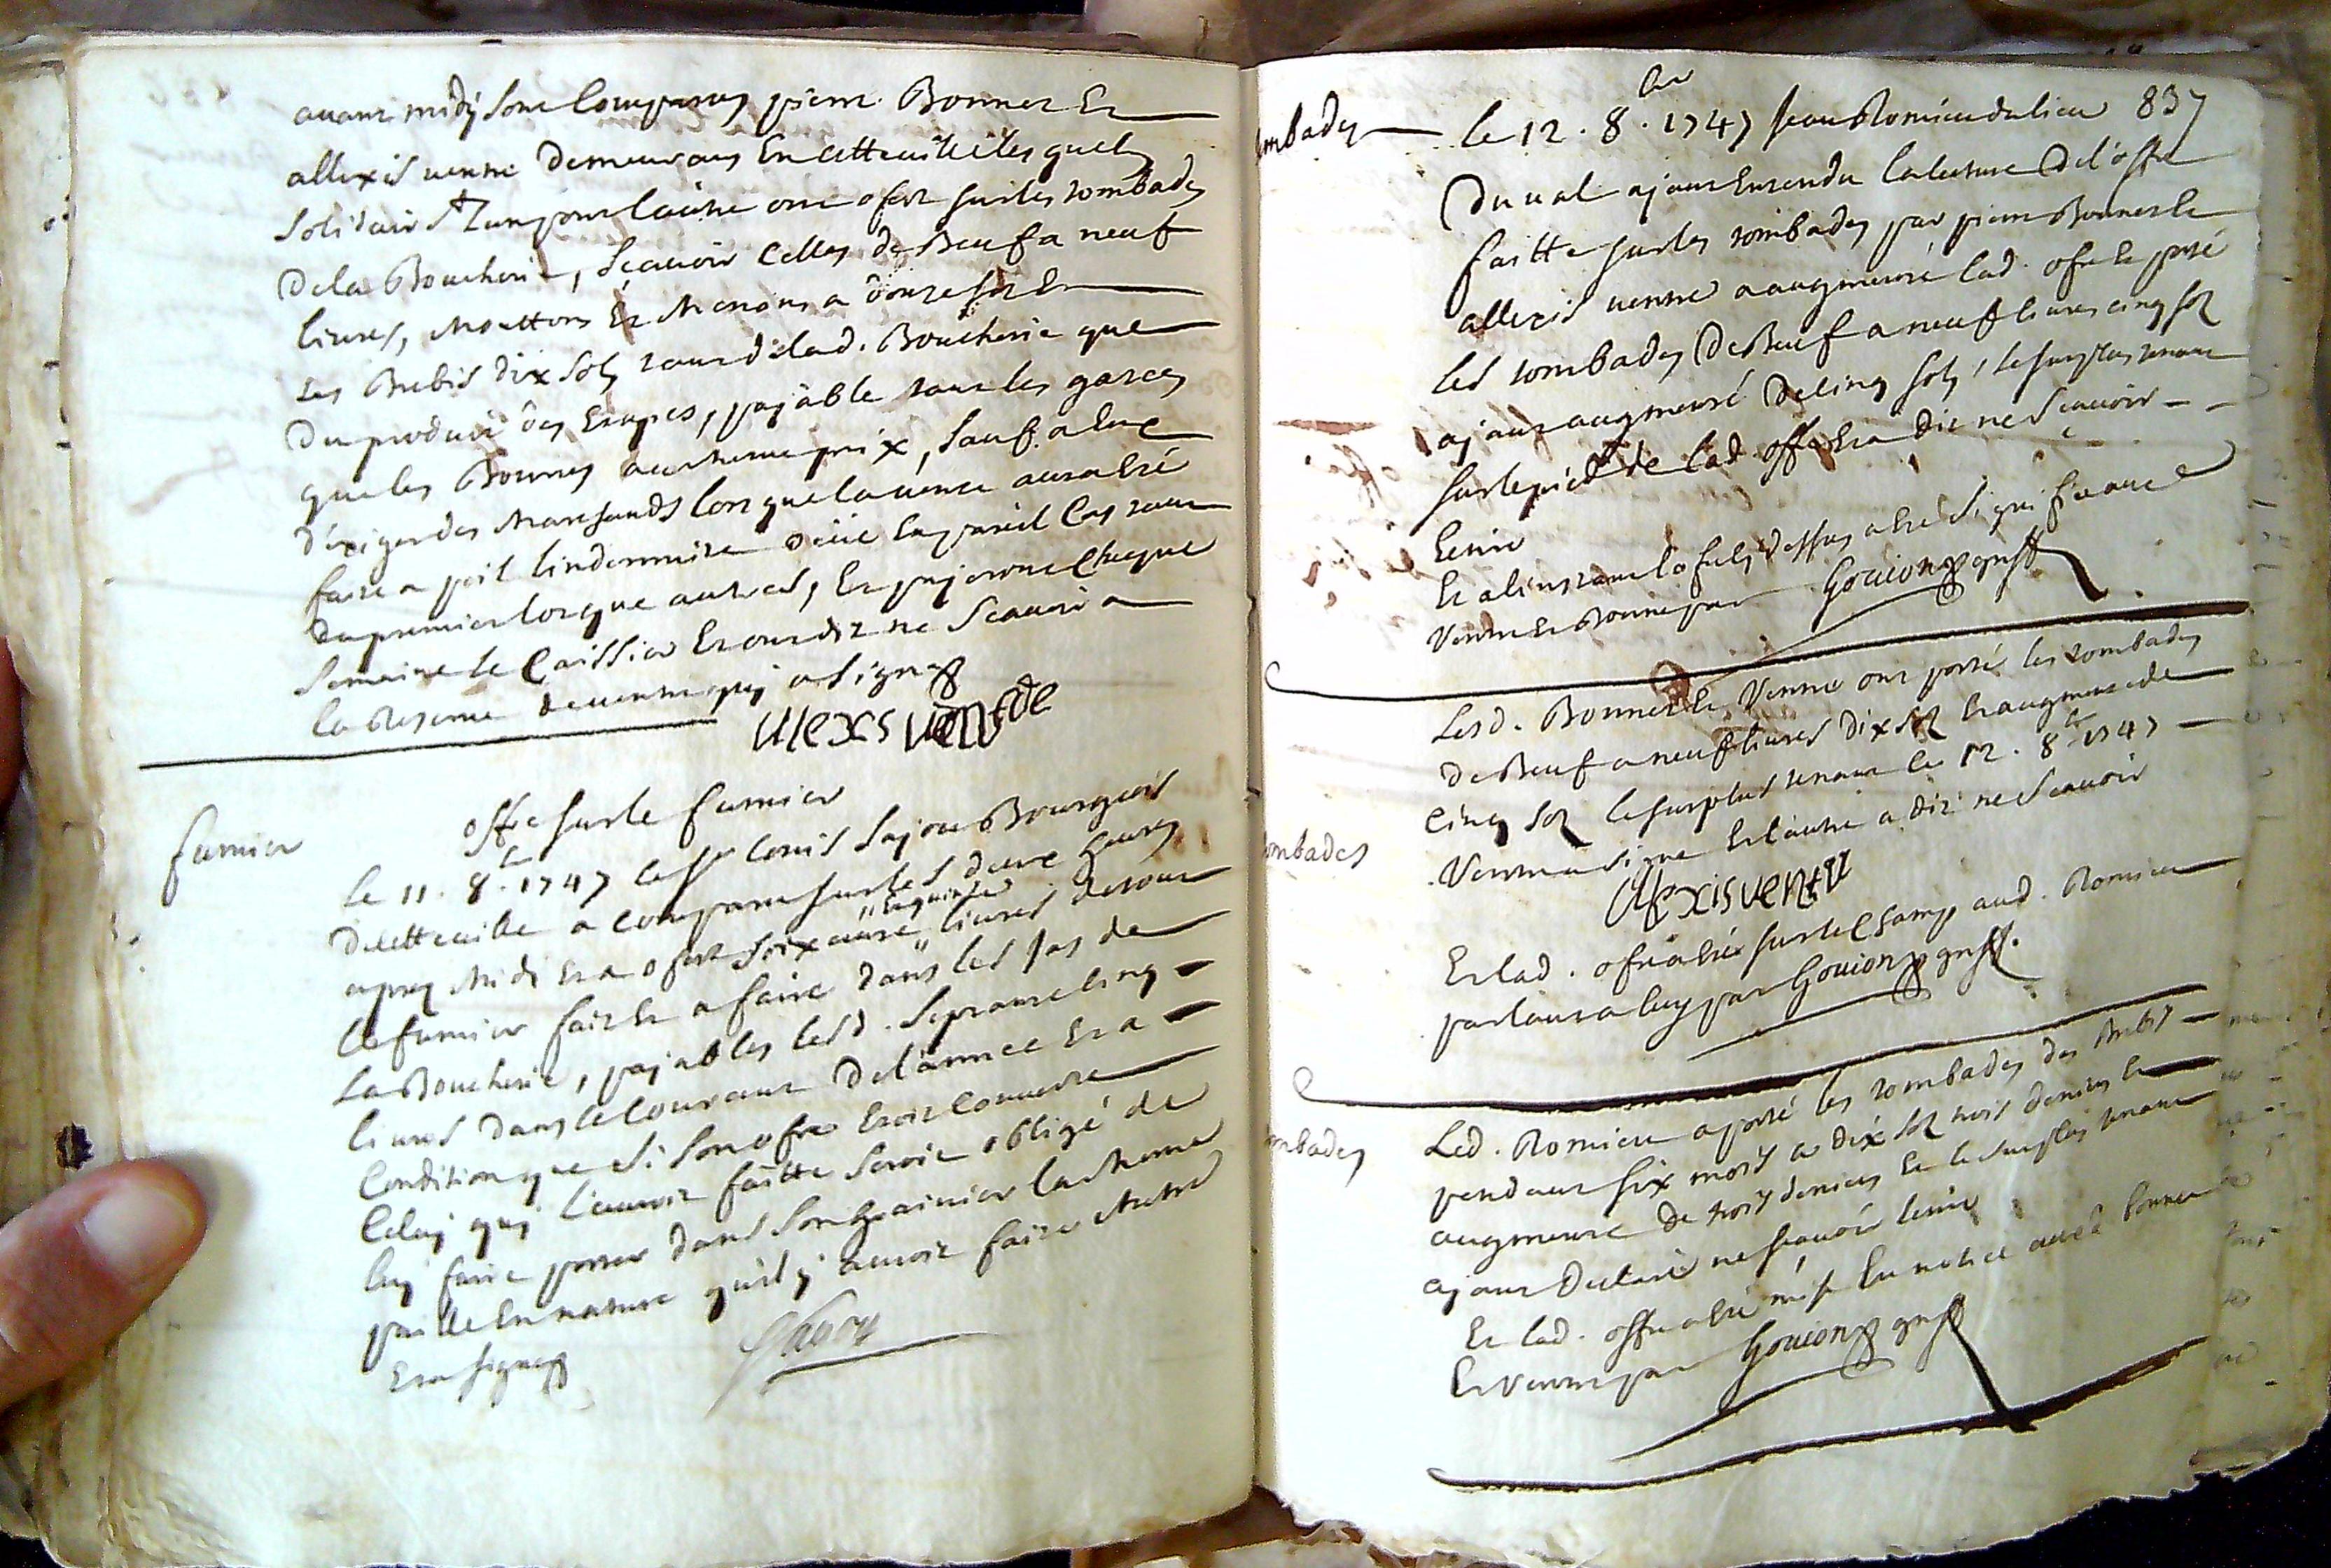 avant midy sont comparus pierre Bonnet Et
allexis venne demeurans En cette ville lesquels
solidairt lun pour lautre ont ofert sur les tombades
de la Boucherie, sçavoir celles de Beuf a neuf
livres, Mouttons Et Menons a douze sols Et
les Brebis dix sols tout de lad. Boucherie que
du produit des Etapes, payable tant les garces
que les Bonnes au meme prix, sauf a Eux
déxiger des Marchands lors que la vente aura Eté
faite a poil lindemnité En pareil Cas tant
du premier lors que autres, Et payeront Chaque
semaine le Caissier Et ont dit ne scavoir a
la Reserve de venne quy a signé
Alexs vente
fumier
offre sur le fumier
le 11. 8bre 1747 le sr louis Bourgeois
de cette ville a comparu sur les deux heures
apres Midi Et a ofert soixante "Et quinze" livres de tout
le fumier fait Et a faire dans les Jas de
La Boucherie, payables lesd. septante cinq
livres dans le courant de l'année Et a
Condition que si son ofre Etoit couverte
Celuy quy l'auroit faitte seroit obligé de
luy faire porter dans son Grainier la meme
paille En nature quil y auroit faite Mettre
Et a signé
tombades
le 12. 8bre 1747 Jean Romieu du lieu 837
Du val ayant Entendu la lecture de l'offre
faitte sur les tombades par pierre Bonnet Et
allexis venne a augmenté lad. ofre Et porté
les tombades de Beuf a neuf livres cinq sols
ayant augmenté de cinq sols, le surplus tenant
sur le pied de lad. offre Et a dit ne Scavoir
Ecrire
Et a linstant lofre cy dessus a Eté signifié aud
Venne Et Bonnet par Gouion greff
Lesd. Bonnet Et Venne ont porté les tombades
de Beuf a neuf livres dix sols Et augmenté de
cinq sols le surplus tenant le 12. 8bre 1747
tombades
Venne a signé Et lautre a dit ne Scavoir
Alexis vente
Et lad. ofre a Eté sur le Champ aud. Romieu
parlant a luy par Gouion greff.
tombades
Led. Romieu a porté les tombades des Brebis
pendant six mois a dix sols trois deniers Et
augmenté de trois deniers Et le surplus tenant
ayant declaré ne scavoir Ecrire
Et lad. offre a Eté mise En notice aud Bonnet
Et Venne par Gouion greff